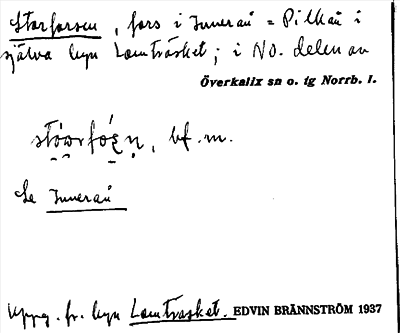 Storforsen, fors i Inneraũ = Pilkåũ i
själva byn Lomträsket; i NO. delen av
Överkalix sn o. tg Norrb. l.
bf. m.
Se Inneraũ
Uppg. fr. byn Lomträsket. EDVIN BRÄNNSTRÖM 1937